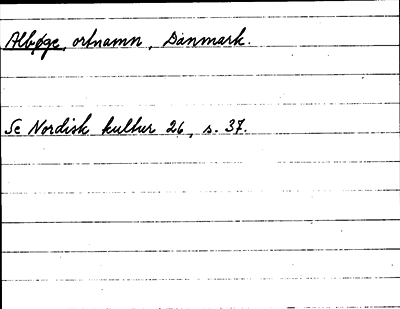 Albøge, ortnamn, Danmark.
Se Nordisk kultur 26, s. 37.